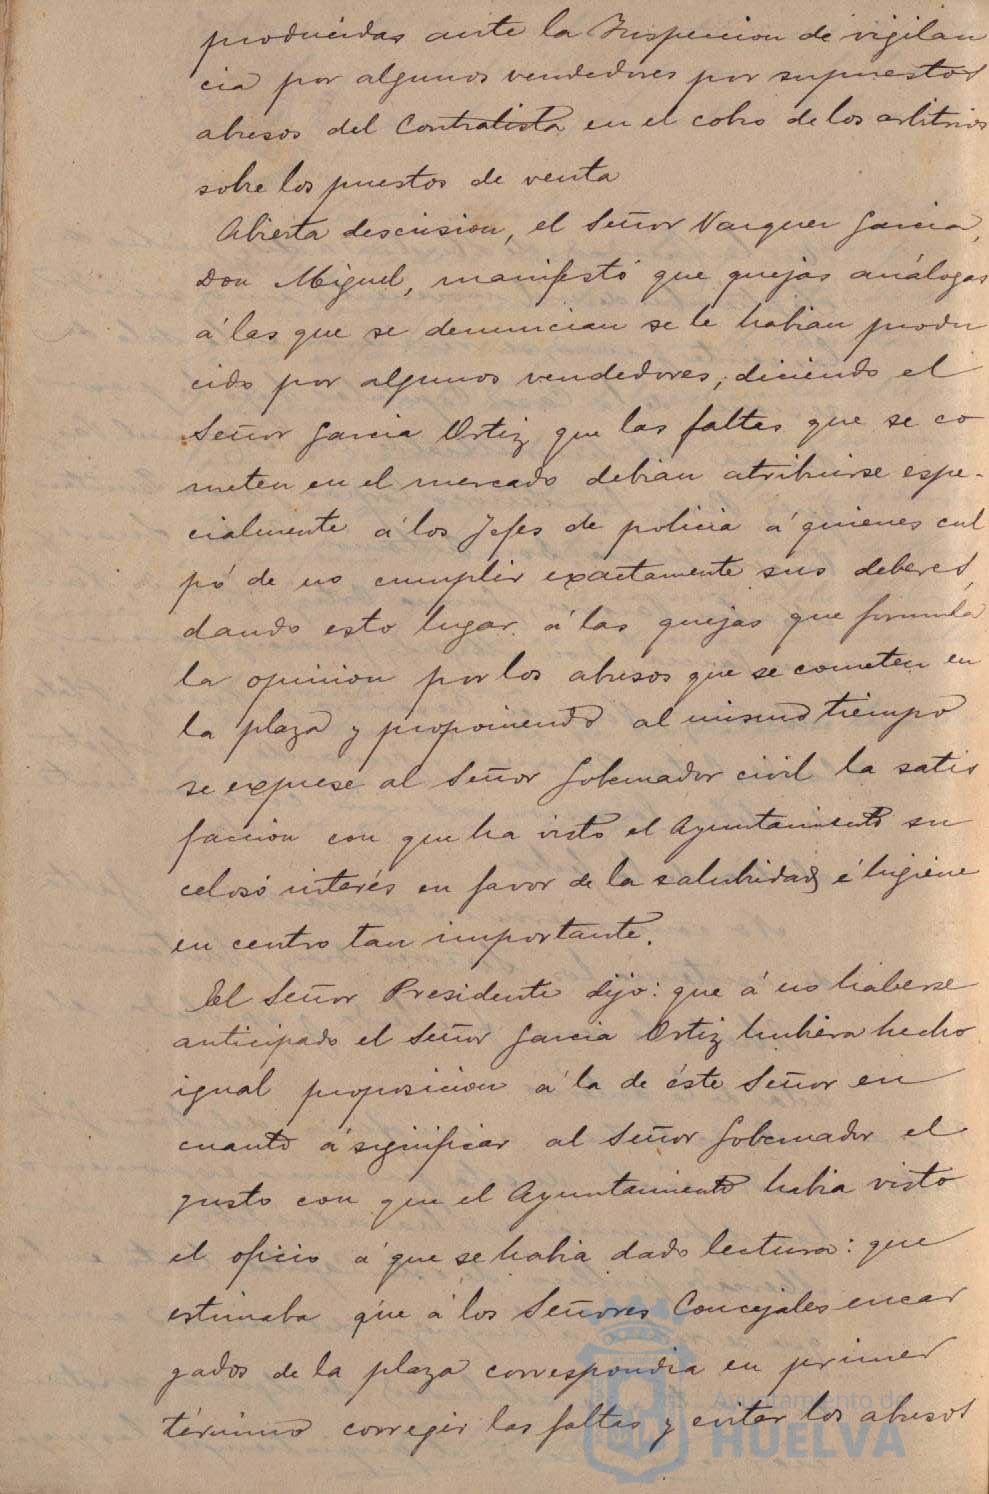 producidas ante la Inspeccion de vigilan
cia por algunos vendedores por supuestos
abusos del Contratista en el cobro de los arbitrios
sobre los puestos de venta
Abierta descusion, el Señor Vazquez Garcia,
Don Miguel, manifestó que quejas análogas
á las que se denuncian se le habian produ
cido por algunos vendedores, diciendo el
Señor Garcia Ortiz que las faltas que se co
meten en el mercado debian atribuirse espe-
cialmente á los Jefes de policia á quienes cul
pó de no cumplir exactamente sus deberes,
dando esto lugar á las quejas que formula
la opinion por los abusos que se cometen en
la plaza y proponiendo al mismo tiempo
se exprese al Señor Gobernador civil la satis
faccion con que ha visto el Ayuntamiento su
celoso interés en favor de la salubridad é higiene
en centro tan importante.
El Señor Presidente dijo: que á no haberse
anticipado el Señor Garcia Ortiz hubiera hecho
igual proposicion á la de éste Señor en
cuanto á significar al Señor Gobernador el
gusto con que el Ayuntamiento habia visto
el oficio á que se habia dado lectura: que
estimaba que á los Señores Concejales encar
gados de la plaza correspondia en primer
término corregir las faltas y evitar los abusos
Ayuntamiento de
HUELVA